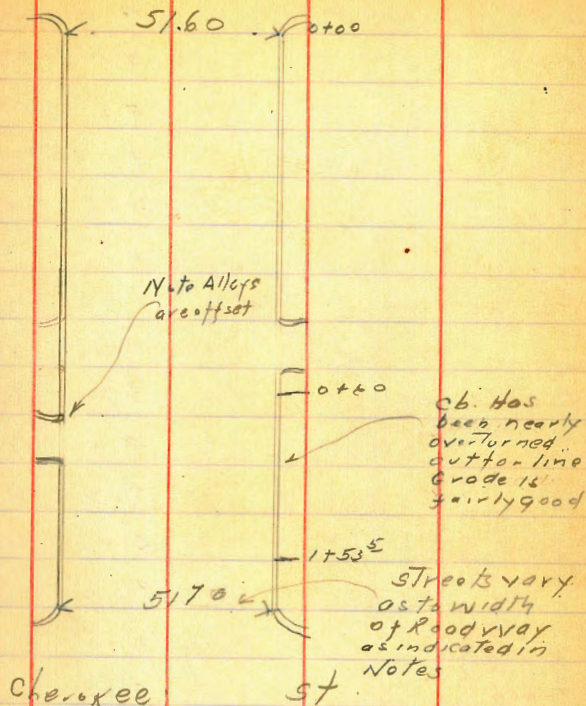 51.60
0+00
Note Alleys
are offset
0+60
cb. Has
been nearly
overturned
guttor line
Grade is
fairly good
1+53⁵
51.70
Streets vary
as to width
of Roadway
as indicated in
Notes
Cherokee St